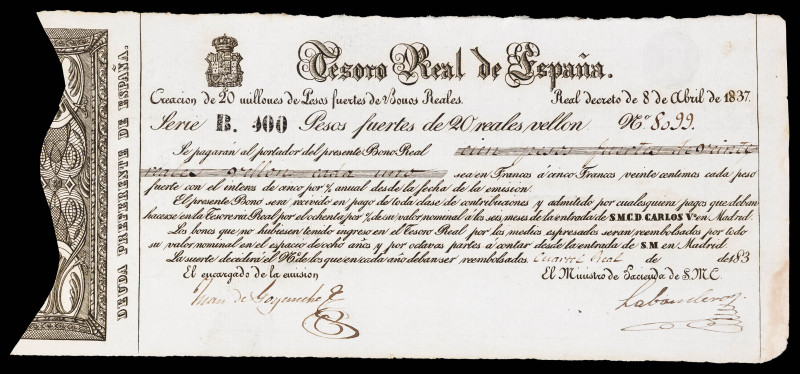 DEUDA PREFERENTE DE ESPAÑA.
Tesoro Real de España.
Creacion de 20 millones de Pesos fuertes de Bonos Reales. Real decreto de 8 de Abril de 1837.
Serie B. 100 Pesos fuertes de 20 reales vellon Nº 8099
Se pagarán al portador del presente Bono Real cien pesos fuertes de veinte
reales vellon cada uno sea en Francos á cinco Francos veinte centimos cada peso
fuerte con el interes de cinco por % anual desde la fecha de la emision.
El presente Bono será recivido en pago de toda clase de contribuciones y admitido por cualesquera pagos que deban
hacerse en la Tesoreria Real por el ochenta por % de su valor nominal á los seis meses de la entrada de S.M.C.D CARLOS Vº. en Madrid.
Los bonos que no hubiesen tenido ingreso en el Tesoro Real por los medios espresados seran reembolsados por todo
su valor nominal en el espacio de ocho años y por octavas partes á contar desde la entrada de S.M en Madrid
La suerte decidirá el Nº de los que en cada año deban ser reembolsados. Cuartel Real de de 183
El encargado de la emision El Ministro de Hacienda de S.M.C.
Juan de Goyeneche
Labandero